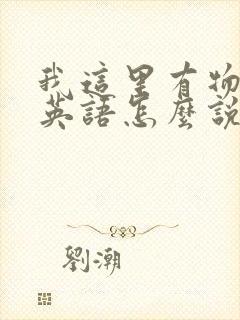 我這里有物
英語怎麼說
劉潮